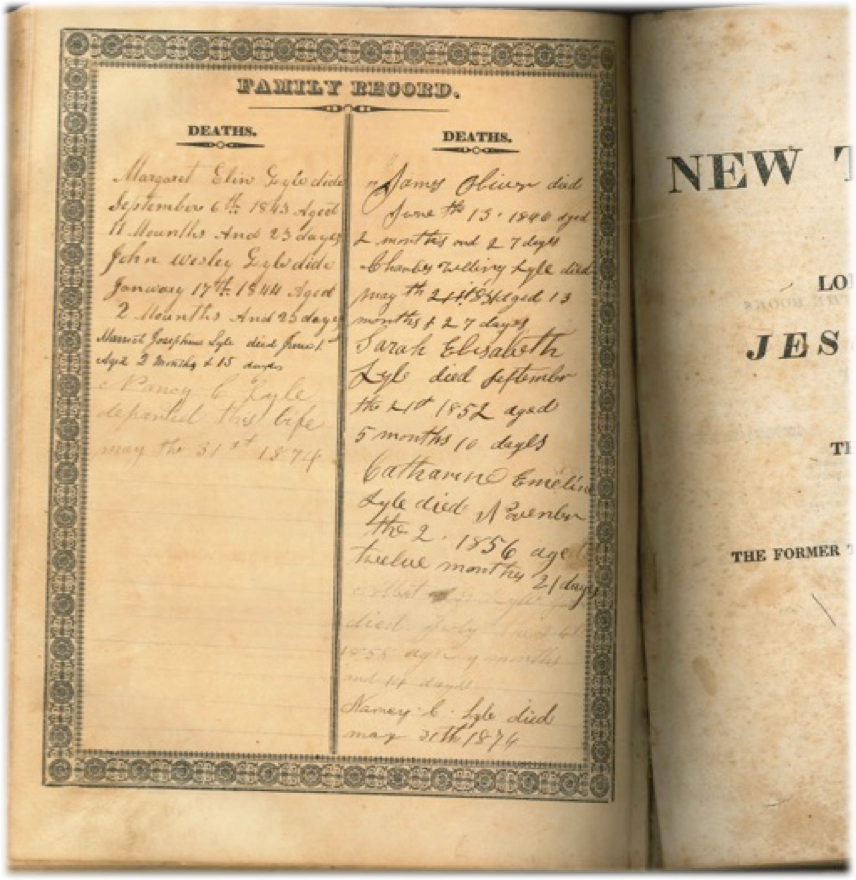 FAMILY RECORD.
DEATHS.
Margaret Elin Lyle dide
September 6th 1843 Aged
11 Mounths And 23 dayes
John Wesley Lyle dide
Janwary 17th 1844 Aged
2 Mounths And 25 dayes
Harriet Josephine Lyle died June 1st
Age 2 Months & 15 days
Nancy C Lyle
departed this life
may the 31st 1874
DEATHS.
James Oliver died
June th 13. 1846 aged
2 months and 27 dayls
Charles Lyle died
may th aged 13
months & 27 days
Sarah Elisabeth
Lyle died September
the 21st 1852 aged
5 months 10 dayls
Catharine Emeline
Lyle died November
the 2. 1856 aged
twelve months 21 days
Albert
died July
1855 age 9 months
and 14 days
Nancy C. Lyle died
may 31th 1874
NEW
LO
JES
TH
THE FORMER